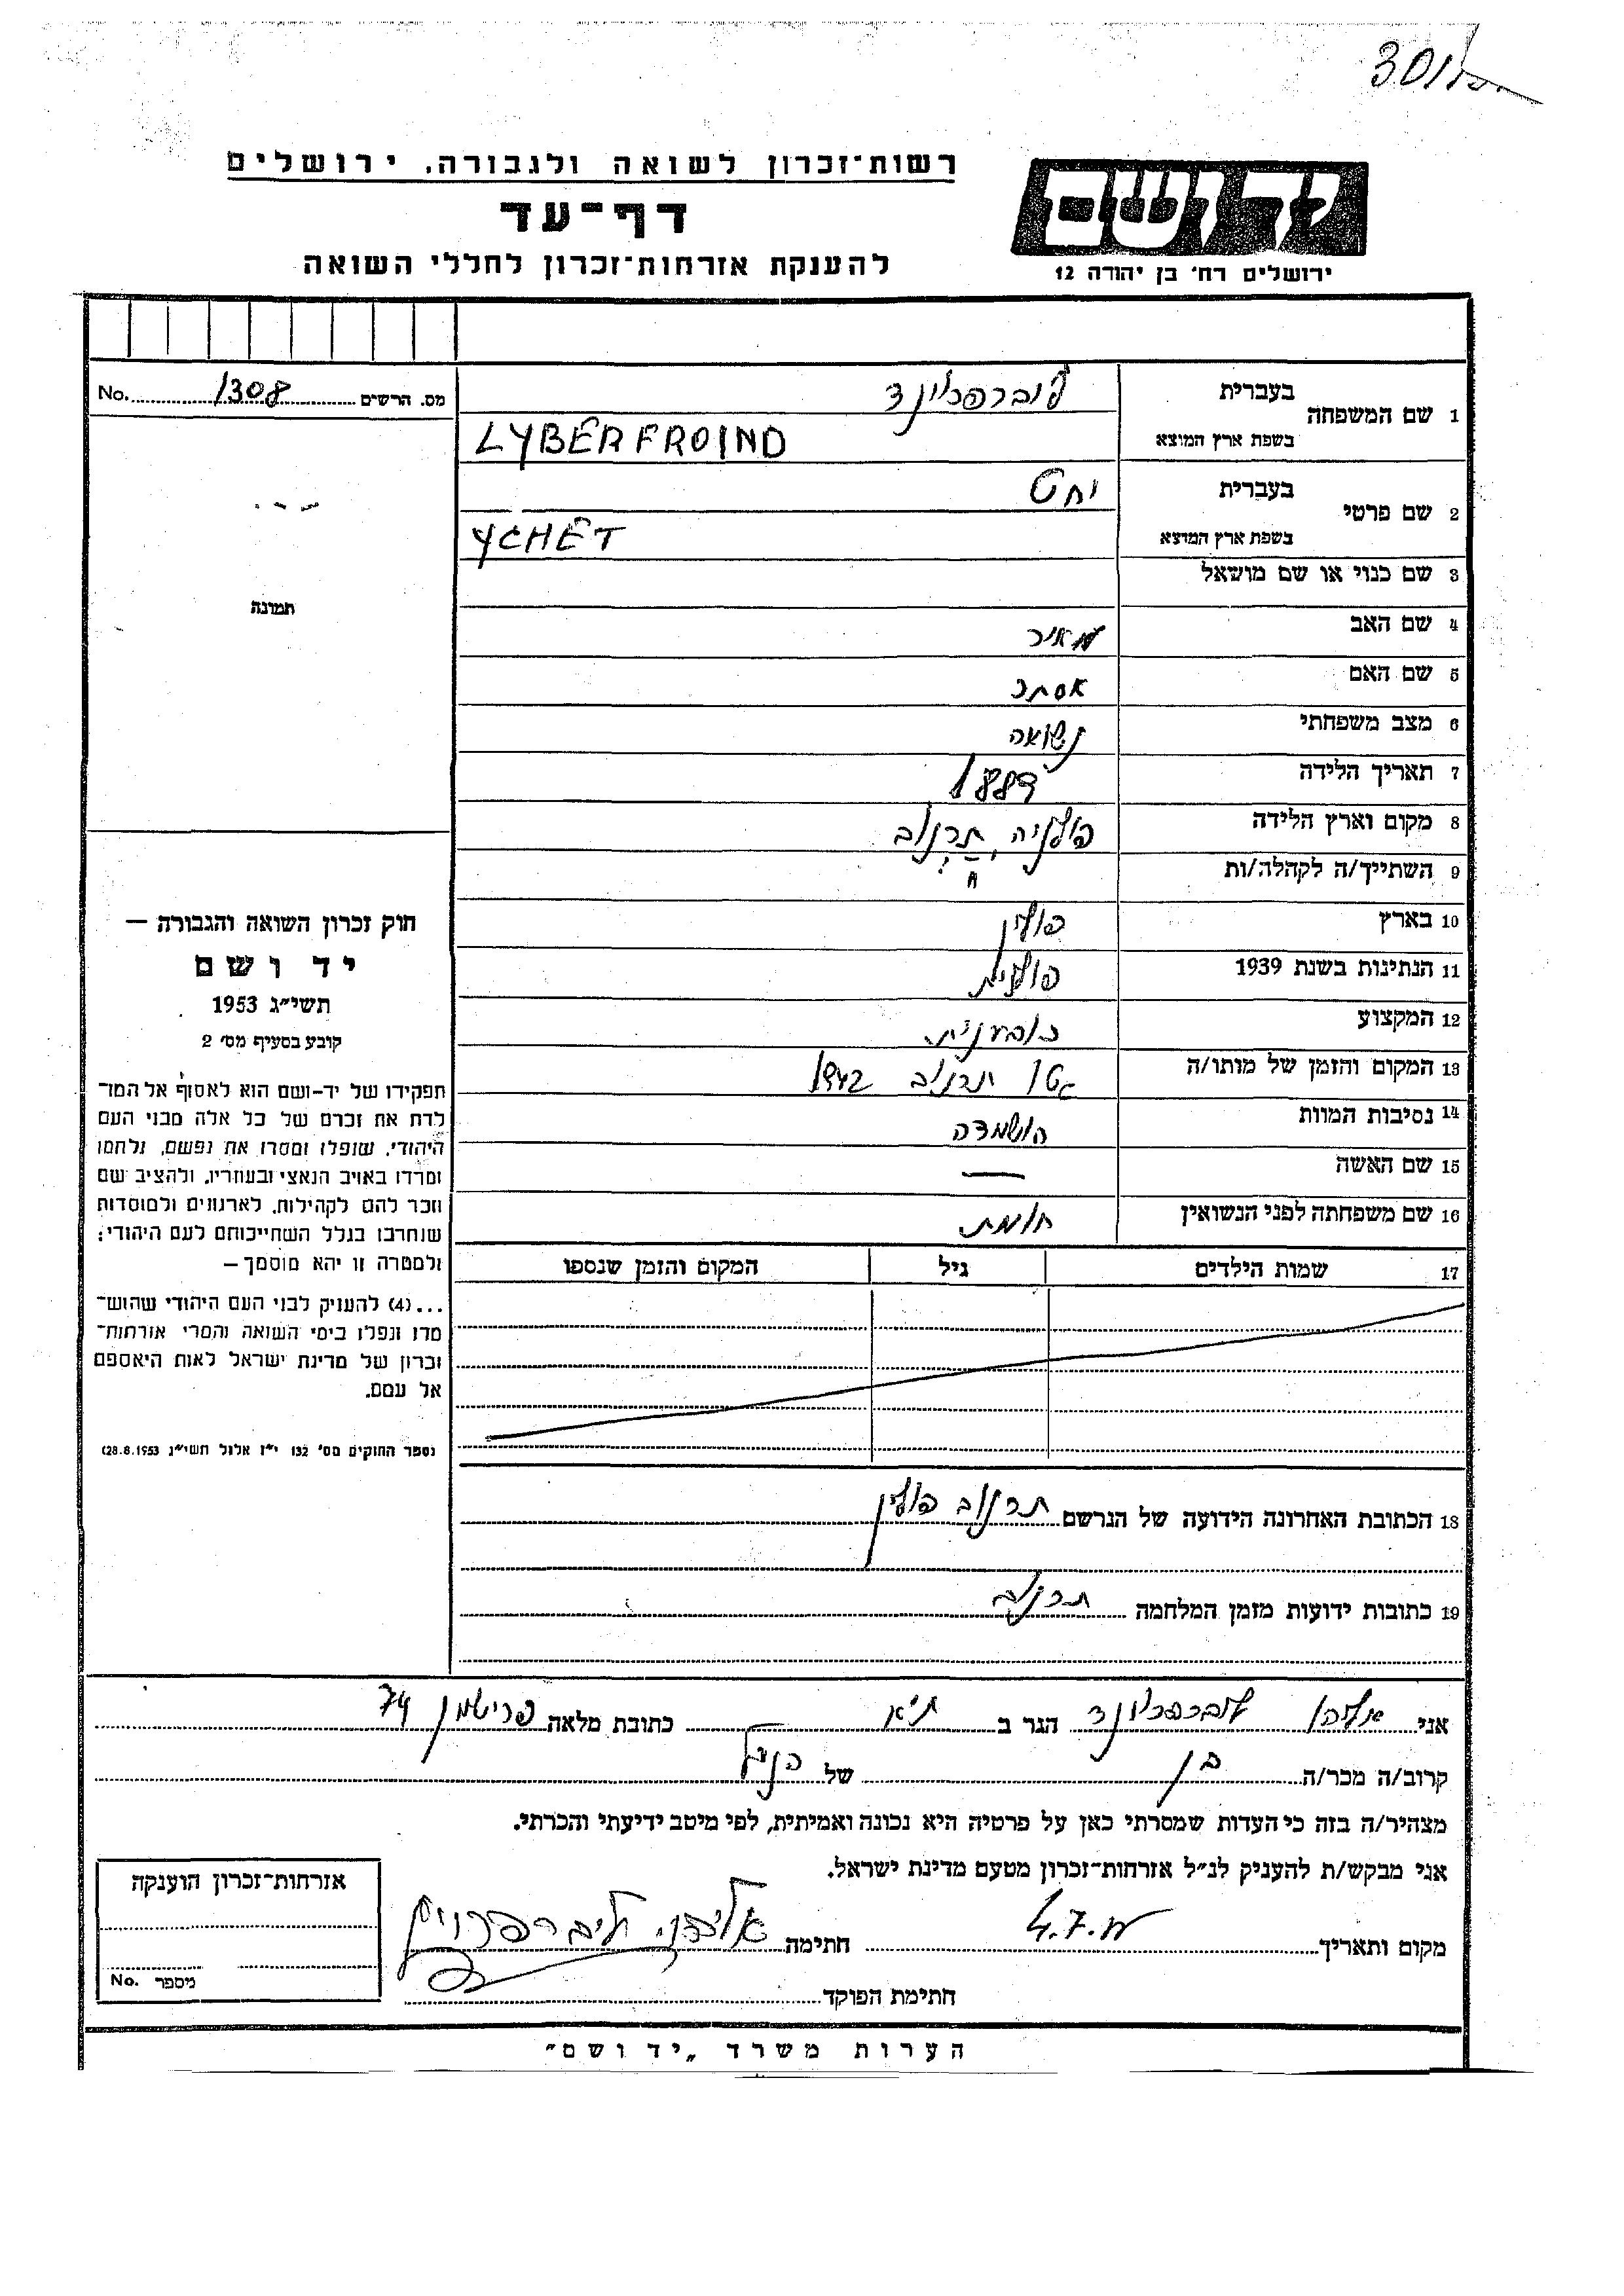 301
רשות־זכרון לשואה ולגבורה, ירושלים
דף־עד
להענקת אזרחות־זכרון לחללי השואה
יד ושם
ירושלים רח׳ בן יהודה 12
No. 1308 מס. הרשים
תמונה
חוק זכרון השואה והגבורה —
יד ושם
תשי״ג 1953
קובע בסעיף מס׳ 2
תפקידו של יד-ושם הוא לאסוף אל המו־
לדת את זכרם של כל אלה מבני העם
היהודי, שנפלו ומסרו את נפשם, נלחמו
ומרדו באויב הנאצי ובעוזריו, ולהציב שם
וזכר להם לקהילות, לארגונים ולמוסדות
שנחרבו בגלל השתייכותם לעם היהודי;
ולמטרה זו יהא מוסמך—
...(4) להעניק לבני העם היהודי שהוש־
מדו ונפלו בימי השואה והמרי אזרחות־
זכרון של מדינת ישראל לאות היאספם
אל עמם.
(ספר החוקים מס׳ 132 י״ז אלול תשי״ג 28.8.1953)
1 שם המשפחה בעברית ליברפרוינד
בשפת ארץ המוצא LYBERFROIND
2 שם פרטי בעברית יחט
בשפת ארץ המוצא YCHET
3 שם כנוי או שם מושאל
4 שם האב מאיר
5 שם האם אסתר
6 מצב משפחתי נשואה
7 תאריך הלידה 1889
8 מקום וארץ הלידה פולניה, תרנוב
9 השתייך/ה לקהלה/ות
10 בארץ פולין
11 הנתינות בשנת 1939 פולנית
12 המקצוע
13 המקום והזמן של מותו/ה גטו תרנוב 1942
14 נסיבות המוות הושמדה
15 שם האשה —
16 שם משפחתה לפני הנשואין
17 שמות הילדים גיל המקום והזמן שנספו
18 הכתובת האחרונה הידועה של הנרשם תרנוב פולין
19 כתובות ידועות מזמן המלחמה תרנוב
אני ליברפרוינד הגר ב ת״א כתובת מלאה פרישמן 74
קרוב/ה מכר/ה בן של הנ״ל
מצהיר/ה בזה כי העדות שמסרתי כאן על פרטיה היא נכונה ואמיתית, לפי מיטב ידיעתי והכרתי.
אני מבקש/ת להעניק לנ״ל אזרחות־זכרון מטעם מדינת ישראל.
מקום ותאריך 4.7 חתימה
חתימת הפוקד
אזרחות־זכרון הוענקה
No. מספר
הערות משרד „יד ושם״